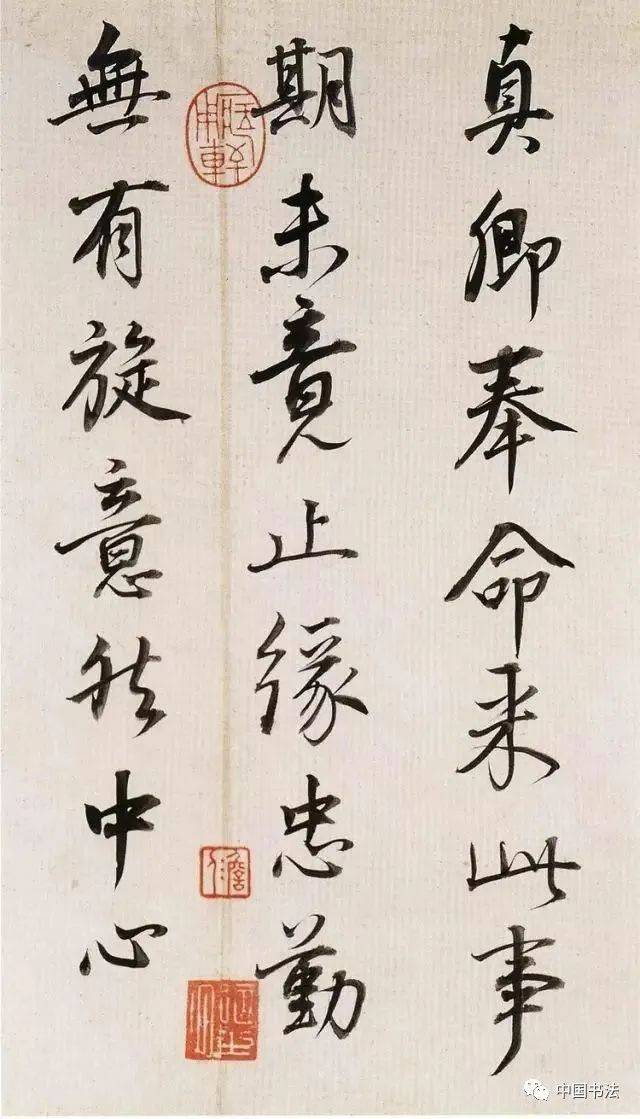 真卿奉命来此事
期未竟止緣忠勤
無有旋意然中心
中国书法